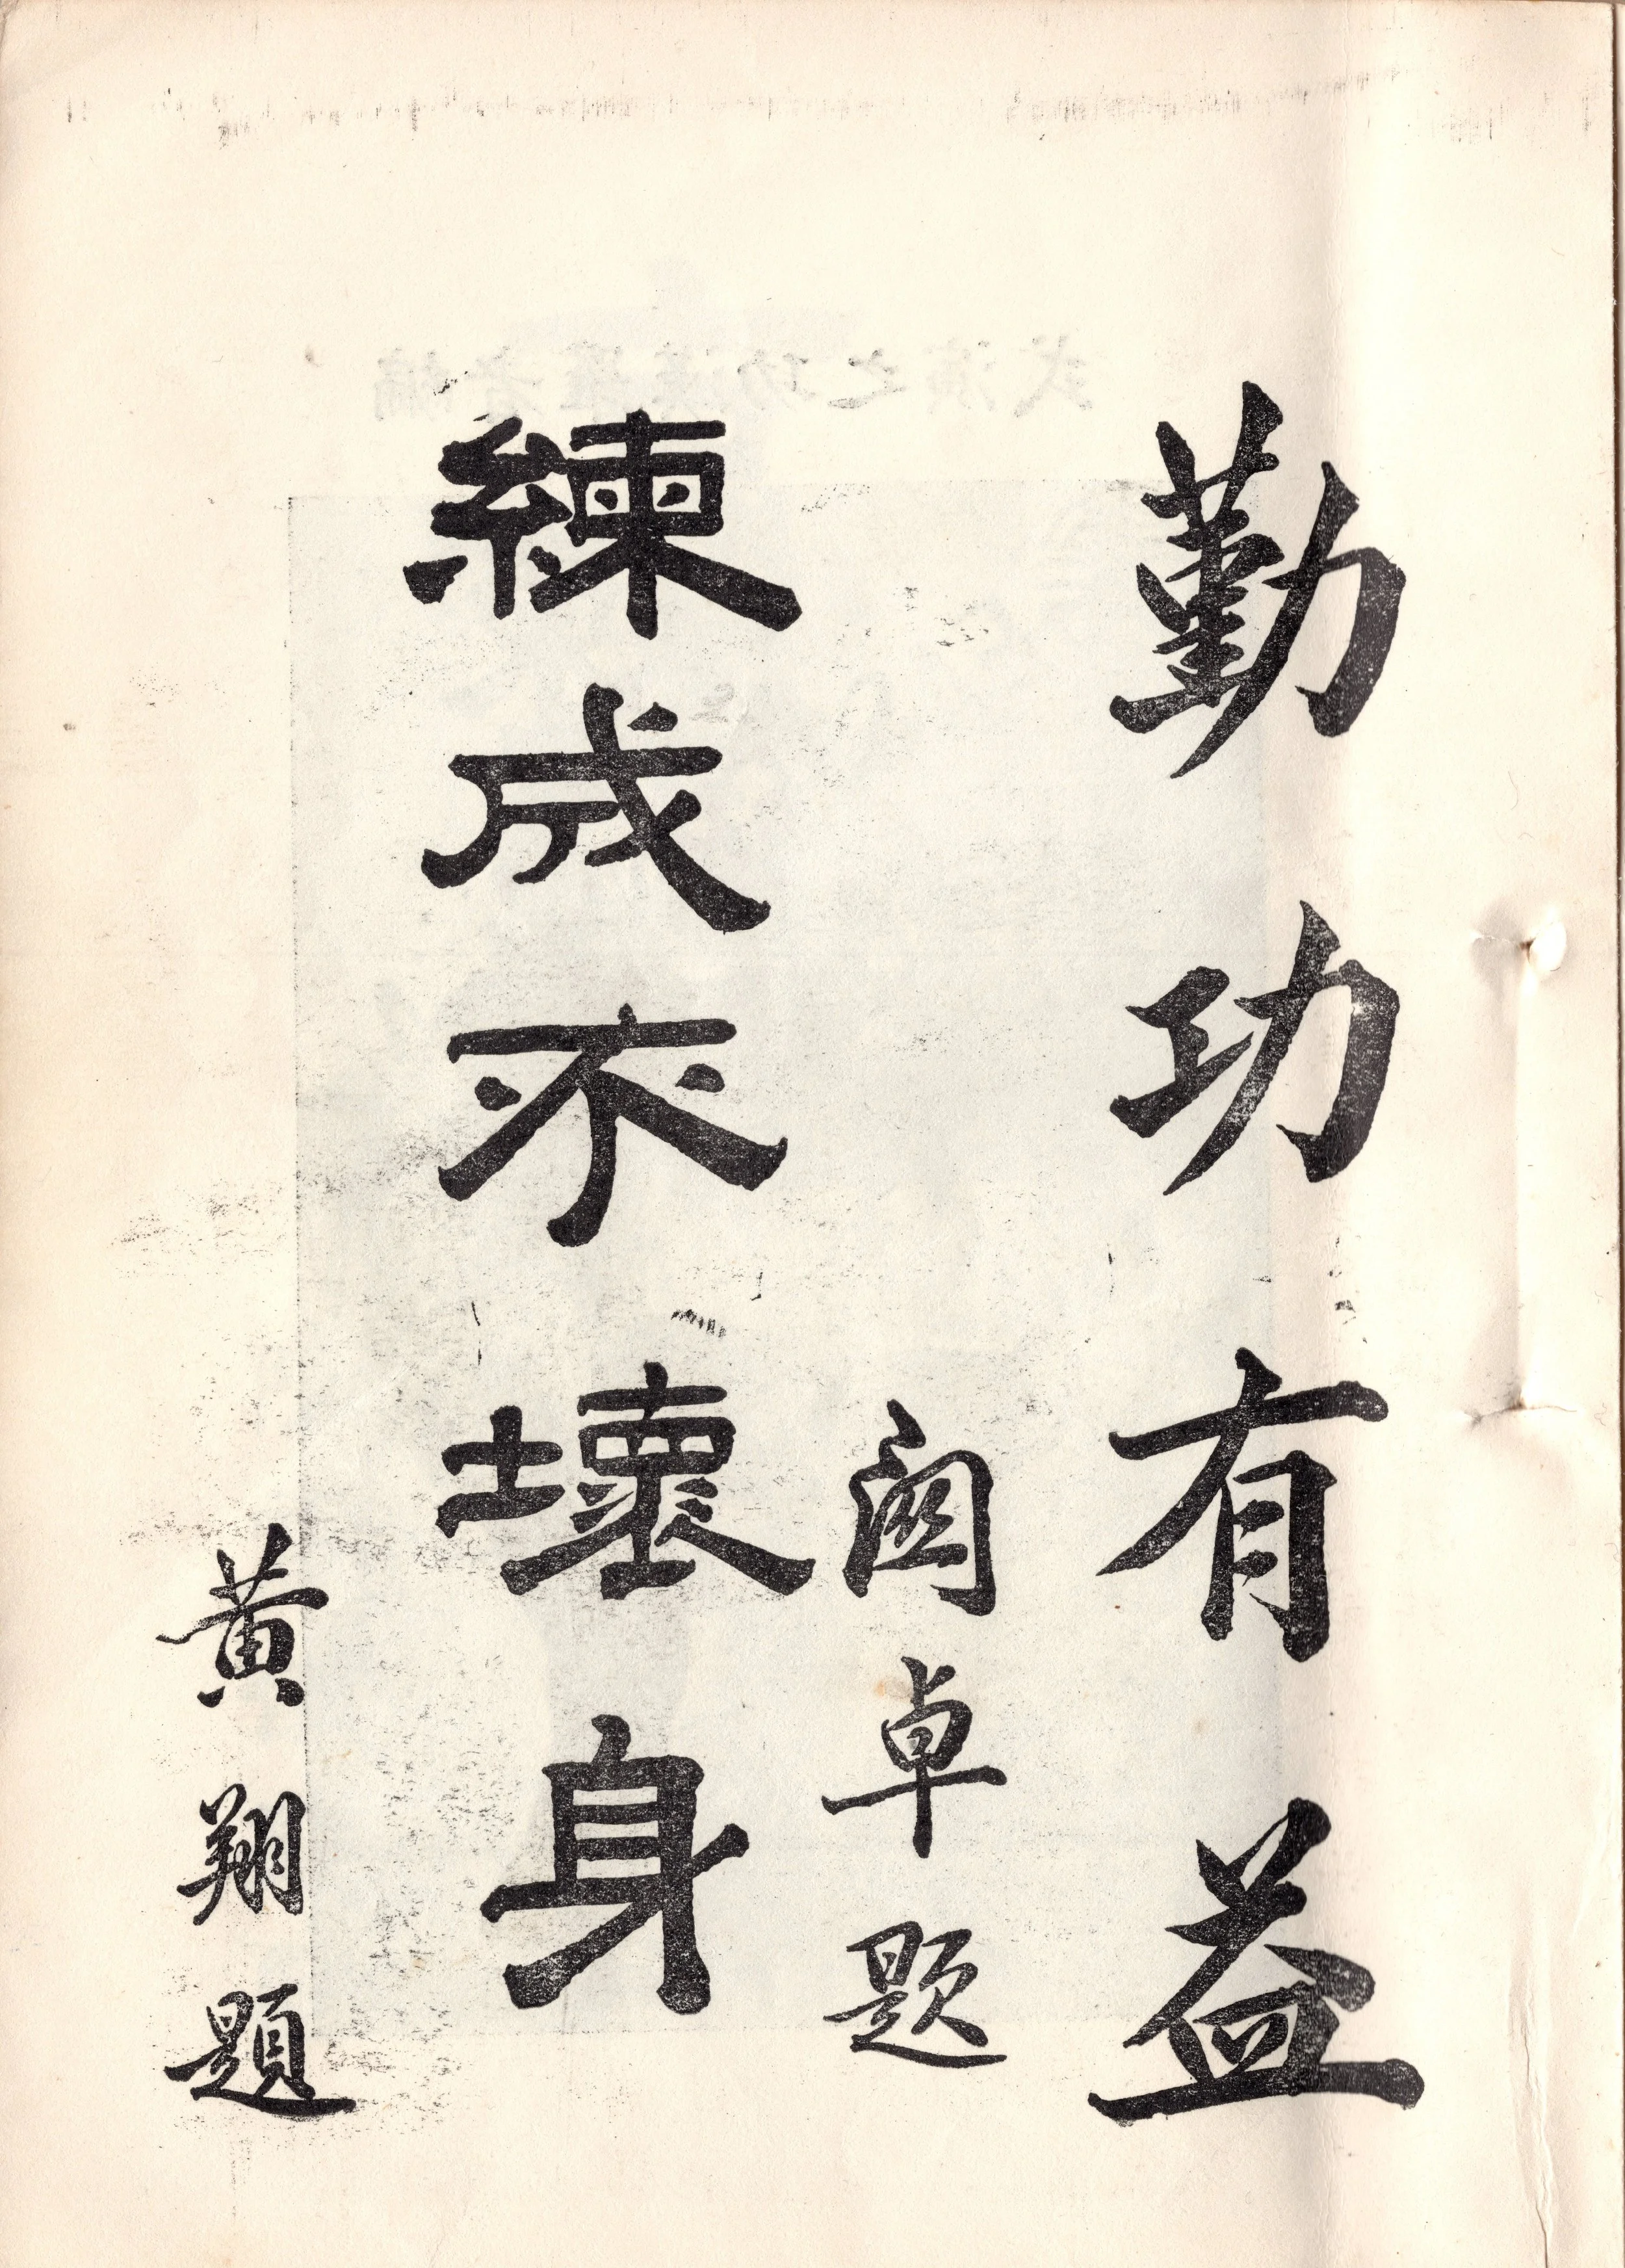 勤功有益
關卓題
練成不壞身
黃翔題